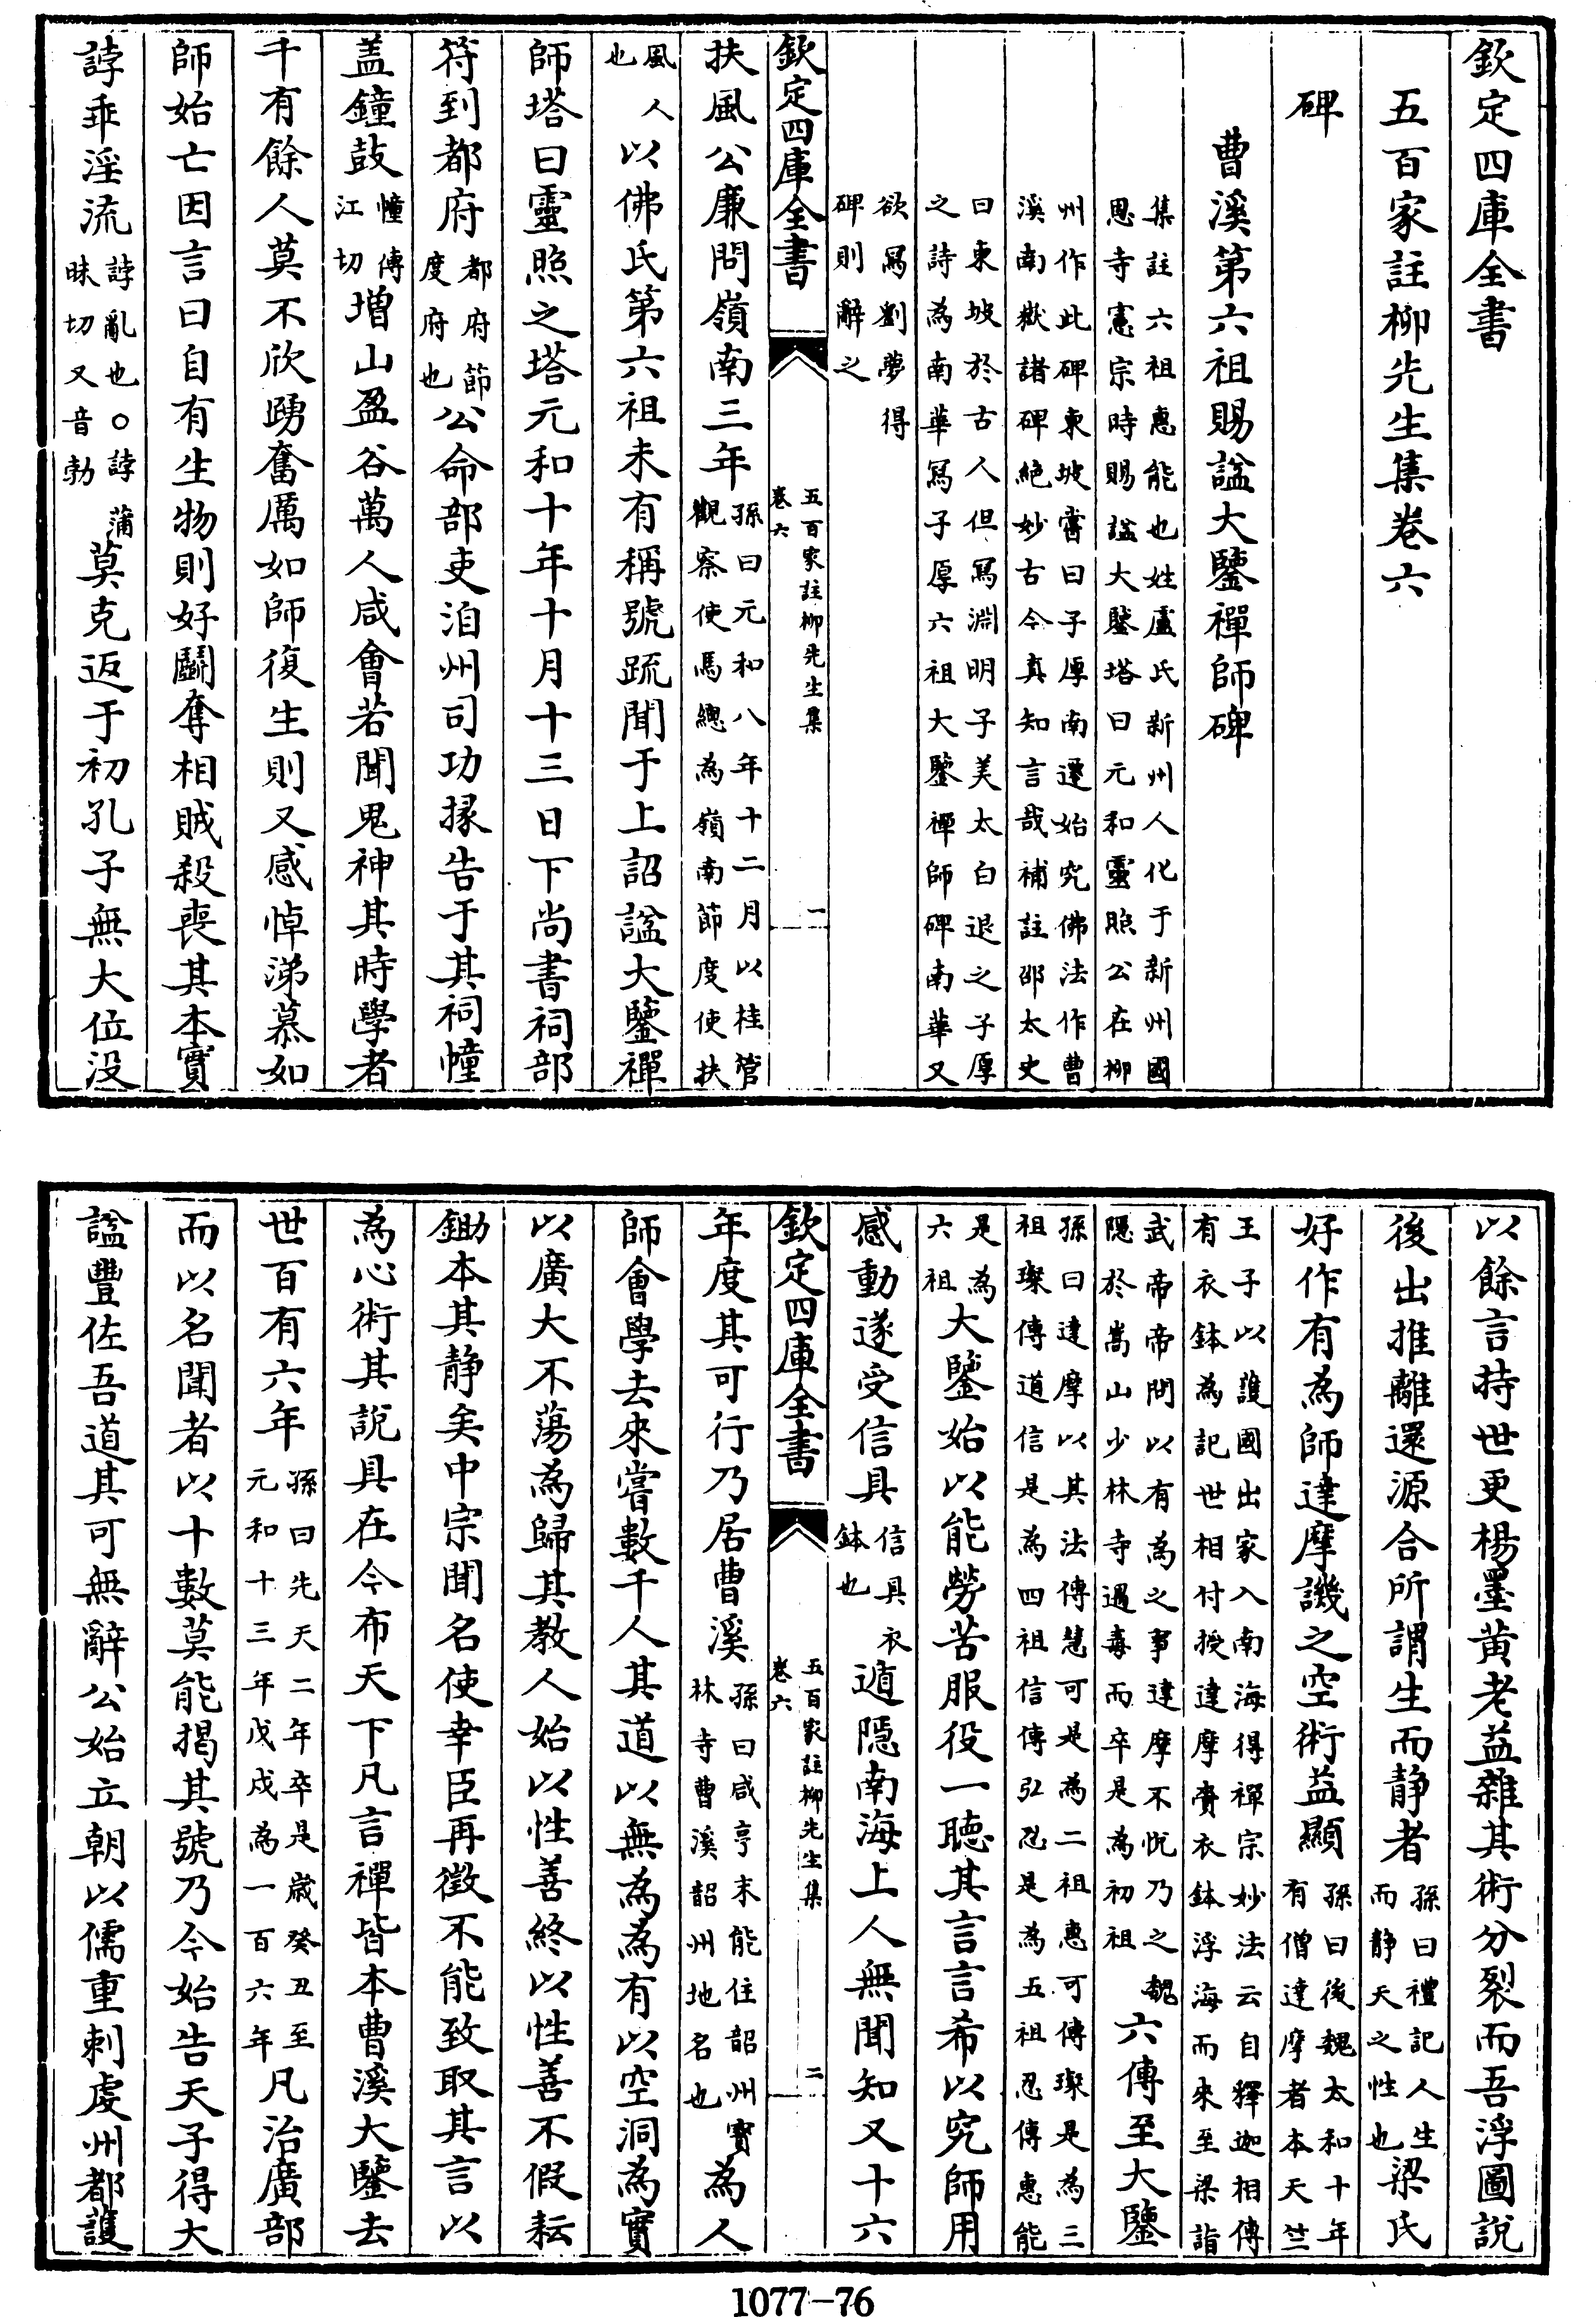 欽定四庫全書
五百家註柳先生集卷六
碑
曹溪第六祖賜諡大鑒禪師碑
集註六祖惠能也姓盧氏新州人化于新州國
恩寺憲宗時賜諡大鑒塔曰元和靈照公在柳
州作此碑東坡嘗曰子厚南遷始究佛法作曹
溪南嶽諸碑絶妙古今真知言哉補註邵太史
曰東坡於古人但寫淵明子美太白退之子厚
之詩為南華寫子厚六祖大鑒禪師碑南華又
欲寫劉夢得
碑則辭之
欽定四庫全書
五百家註柳先生集
卷六
一
扶風公廉問嶺南三年孫曰元和八年十二月以桂管觀察使馬總為嶺南節度使扶
風人也以佛氏第六祖未有稱號疏聞于上詔諡大鑒禪
師塔曰靈照之塔元和十年十月十三日下尚書祠部
符到都府都府節度府也公命部吏洎州司功掾告于其祠幢
盖鐘鼓幢傳江切增山盈谷萬人咸會若聞鬼神其時學者
千有餘人莫不欣踴奮厲如師復生則又感悼涕慕如
師始亡因言曰自有生物則好鬭奪相賊殺喪其本實
誖乖淫流誖亂也○誖蒲昧切又音勃莫克返于初孔子無大位没
以餘言持世更楊墨黄老益雜其術分裂而吾浮圖説
後出推離還源合所謂生而静者孫曰禮記人生而静天之性也梁氏
好作有為師達摩譏之空術益顯孫曰後魏太和十年有僧達摩者本天竺
王子以護國出家入南海得禪宗妙法云自釋迦相傳
有衣鉢為記世相付授達摩賫衣鉢浮海而來至梁詣
武帝帝問以有為之事達摩不悦乃之魏隱於嵩山少林寺遇毒而卒是為初祖六傳至大鑒
孫曰達摩以其法傳慧可是為二祖惠可傳璨是為三
祖璨傳道信是為四祖信傳弘忍是為五祖忍傳惠能
是為六祖大鑒始以能勞苦服役一聴其言言希以究師用
感動遂受信具信具衣鉢也遁隱南海上人無聞知又十六
欽定四庫全書
五百家註柳先生集
卷六
二
年度其可行乃居曹溪孫曰咸亨末能住韶州寳林寺曹溪韶州地名也為人
師會學去來嘗數千人其道以無為為有以空洞為實
以廣大不蕩為歸其教人始以性善終以性善不假耘
鋤本其静矣中宗聞名使幸臣再徵不能致取其言以
為心術其説具在今布天下凡言禪皆本曹溪大鑒去
世百有六年孫曰先天二年卒是歳癸丑至元和十三年戊戌為一百六年凡治廣部
而以名聞者以十數莫能揭其號乃今始告天子得大
諡豐佐吾道其可無辭公始立朝以儒重刺虔州都護
1077-76